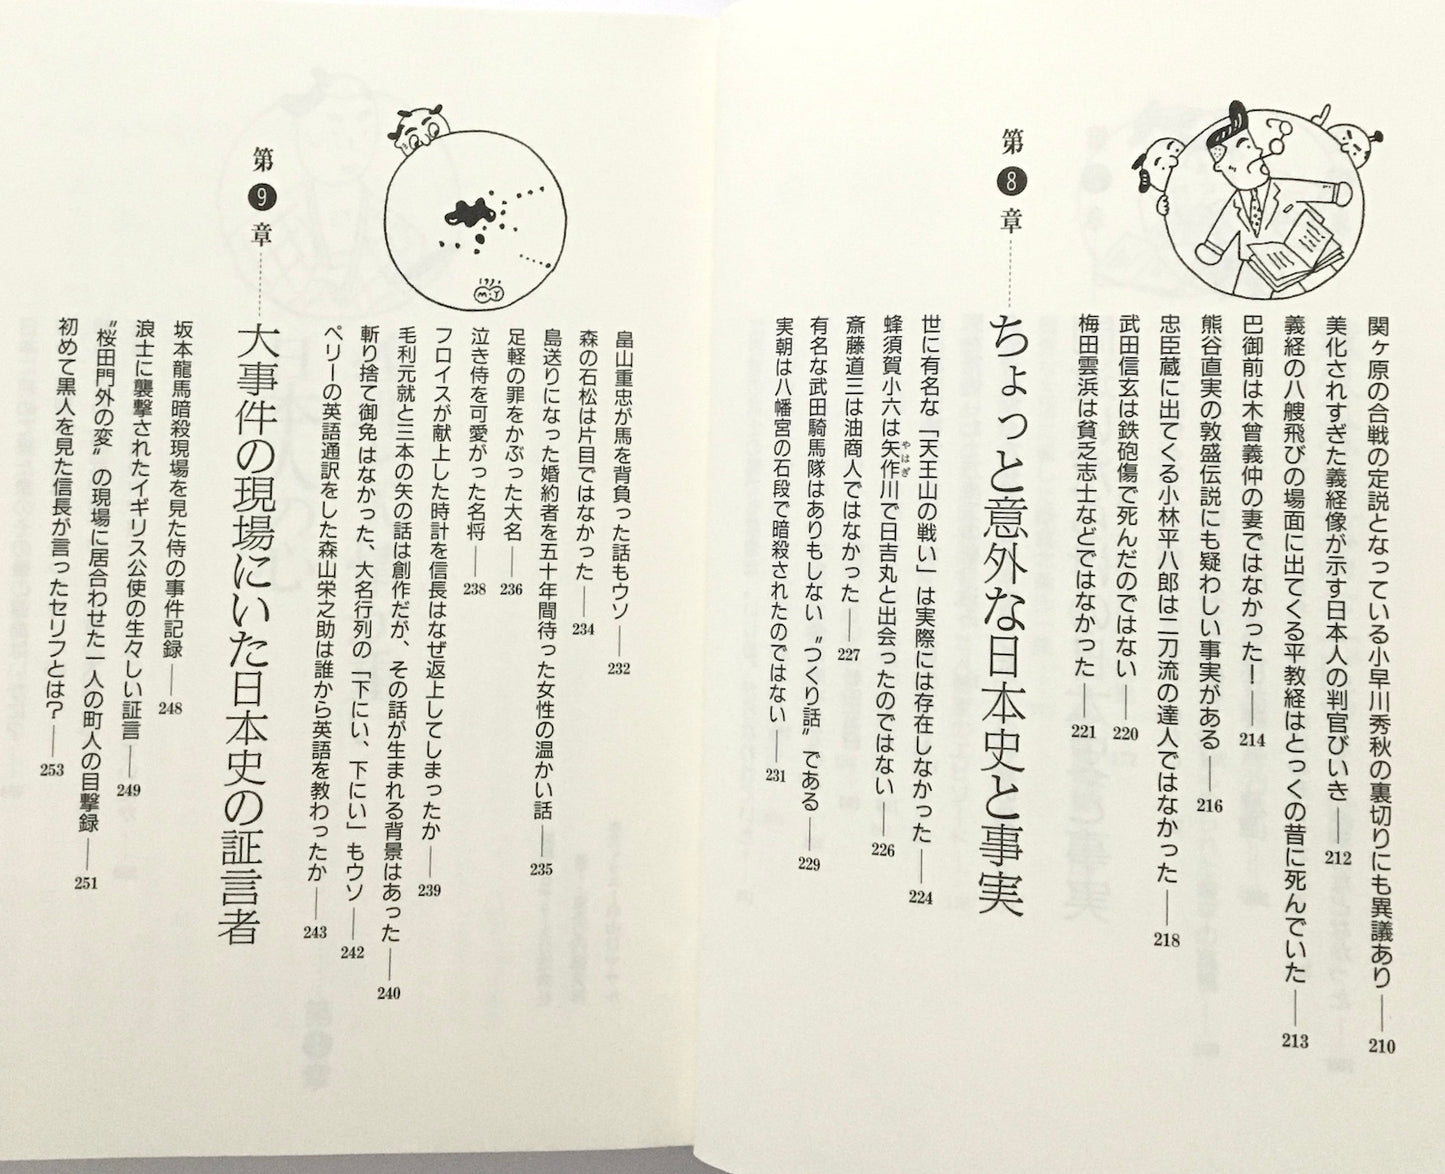 第8章
ちょっと意外な日本史と事実
関ヶ原の合戦の定説となっている小早川秀秋の裏切りにも異議あり──210
美化されすぎた義経像が示す日本人の判官びいき──212
義経の八艘飛びの場面に出てくる平教経はとっくの昔に死んでいた──213
巴御前は木曾義仲の妻ではなかった!──214
熊谷直実の敦盛伝説にも疑わしい事実がある──216
忠臣蔵に出てくる小林平八郎は二刀流の達人ではなかった──218
武田信玄は鉄砲傷で死んだのではない──220
梅田雲浜は貧乏志士などではなかった──221
世に有名な「天王山の戦い」は実際には存在しなかった──224
蜂須賀小六は矢作川で日吉丸と出会ったのではない──226
やはぎ
斎藤道三は油商人ではなかった──227
有名な武田騎馬隊はありもしない〝つくり話〟である──229
実朝は八幡宮の石段で暗殺されたのではない──231
畠山重忠が馬を背負った話もウソ──232
森の石松は片目ではなかった──234
島送りになった婚約者を五十年間待った女性の温かい話──235
足軽の罪をかぶった大名──236
泣き侍を可愛がった名将──238
フロイスが献上した時計を信長はなぜ返上してしまったか──239
毛利元就と三本の矢の話は創作だが、その話が生まれる背景はあった──240
斬り捨て御免はなかった、大名行列の「下にい、下にい」もウソ──242
ペリーの英語通訳をした森山栄之助は誰から英語を教わったか──243
第9章
大事件の現場にいた日本史の証言者
坂本龍馬暗殺現場を見た侍の事件記録──248
浪士に襲撃されたイギリス公使の生々しい証言──249
〝桜田門外の変〟の現場に居合わせた一人の町人の目撃録──251
初めて黒人を見た信長が言ったセリフとは?──253